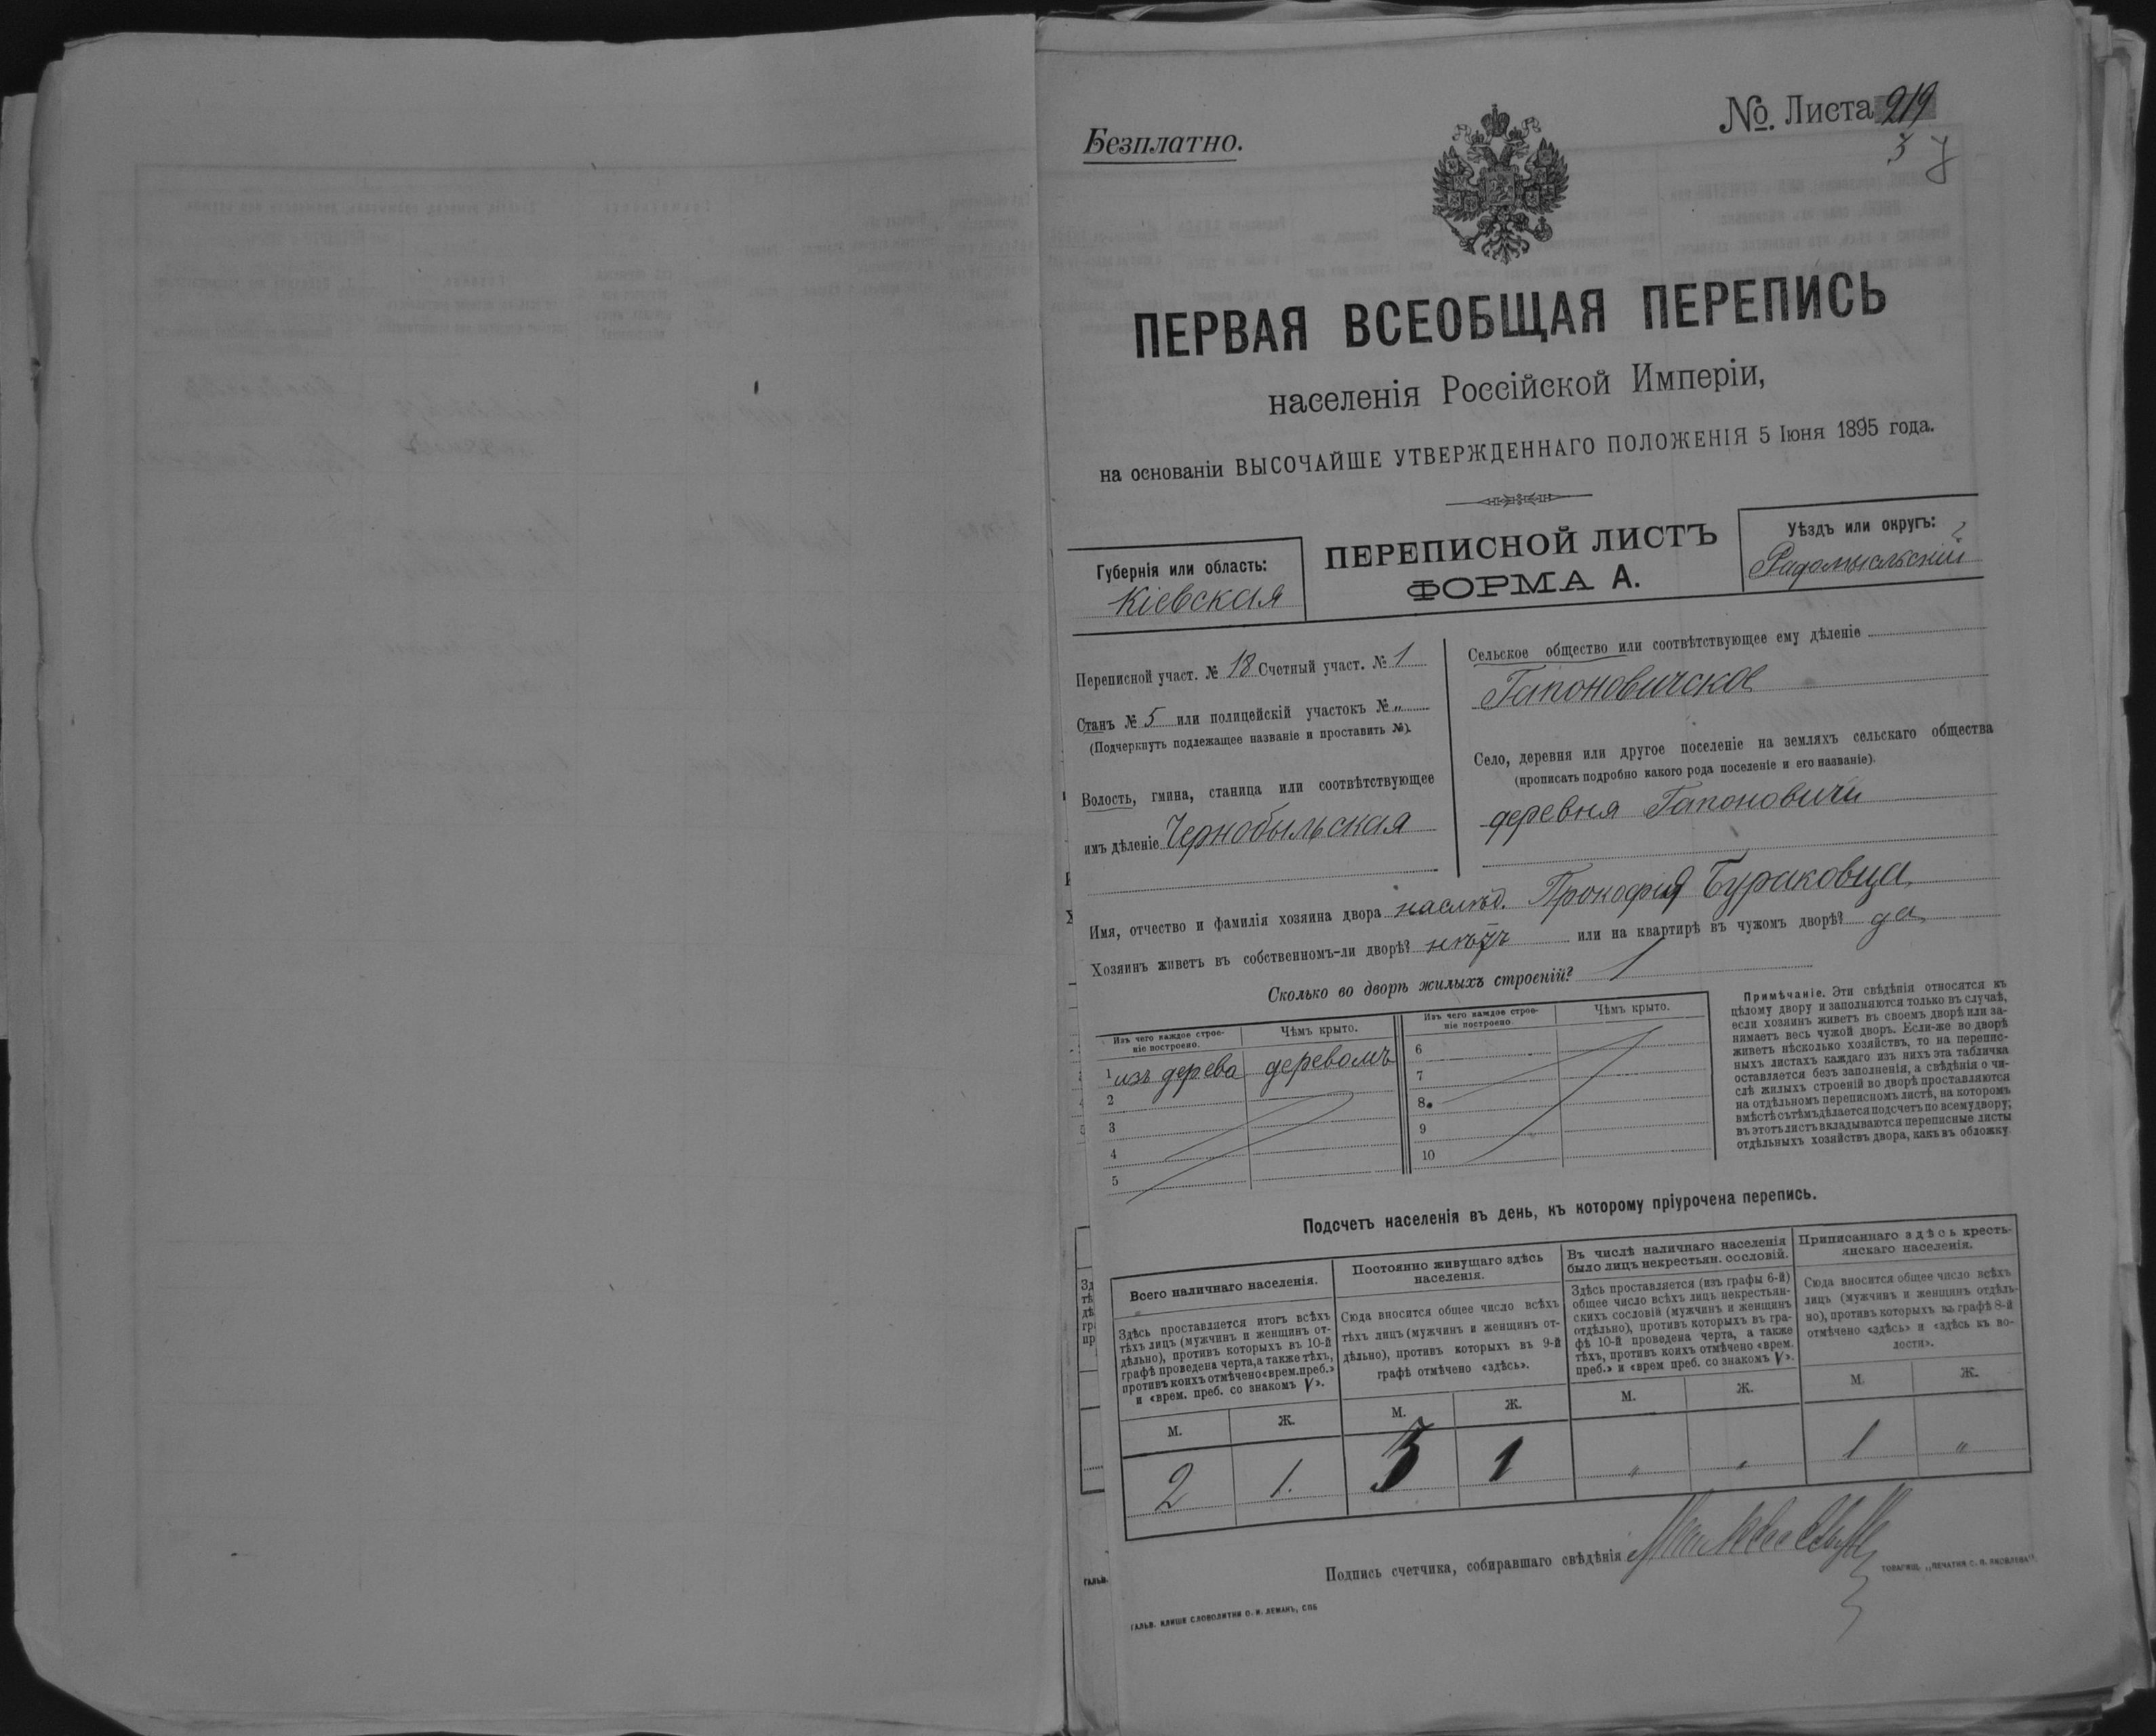 Безплатно.
№. Листа 219
3
ПЕРВАЯ ВСЕОБЩАЯ ПЕРЕПИСЬ
населенія Россійской Имперіи,
на основаніи ВЫСОЧАЙШЕ УТВЕРЖДЕННАГО ПОЛОЖЕНІЯ 5 Іюня 1895 года.
Губернія или область:
Кіевская
ПЕРЕПИСНОЙ ЛИСТЪ
ФОРМА А.
Уѣздъ или округъ:
Радомысльскій
Переписной участ. № 18 Счетный участ. № 1
Станъ № 5 или полицейскій участокъ № „
(Подчеркнуть подлежащее названіе и проставить №).
Волость, гмина, станица или соотвѣтствующее
имъ дѣленіе Чернобыльская
Сельское общество или соотвѣтствующее ему дѣленіе
Гапоновичское
Село, деревня или другое поселеніе на земляхъ сельскаго общества
(прописать подробно какого рода поселеніе и его названіе).
деревня Гапоновичи
Имя, отчество и фамилія хозяина двора наслѣд. Прокофія Бураковца
Хозяинъ живетъ въ собственномъ-ли дворѣ? нѣтъ или на квартирѣ въ чужомъ дворѣ? да
Сколько во дворѣ жилыхъ строеній? 1
Изъ чего каждое строе-
ніе построено.
Чѣмъ крыто.
Изъ чего каждое строе-
ніе построено
Чѣмъ крыто.
1 изъ дерева деревомъ
2
3
4
5
6
7
8
9
10
Примѣчаніе. Эти свѣдѣнія относятся къ
цѣлому двору и заполняются только въ случаѣ,
если хозяинъ живетъ въ своемъ дворѣ или за-
нимаетъ весь чужой дворъ. Если-же во дворѣ
живетъ нѣсколько хозяйствъ, то на перепис-
ныхъ листахъ каждаго изъ нихъ эта табличка
оставляется безъ заполненія, а свѣдѣнія о чи-
слѣ жилыхъ строеній во дворѣ проставляются
на отдѣльномъ переписномъ листѣ, на которомъ
вмѣстѣ съ тѣмъ дѣлается подсчетъ по всему двору;
въ этотъ листъ вкладываются переписные листы
отдѣльныхъ хозяйствъ двора, какъ въ обложку.
Подсчетъ населенія въ день, къ которому пріурочена перепись.
Всего наличнаго населенія.
Здѣсь проставляется итогъ всѣхъ
тѣхъ лицъ (мужчинъ и женщинъ от-
дѣльно), противъ которыхъ въ 10-й
графѣ проведена черта, а также тѣхъ,
противъ коихъ отмѣчено «врем. преб.»
и «врем. преб. со знакомъ V».
Постоянно живущаго здѣсь
населенія.
Сюда вносится общее число всѣхъ
тѣхъ лицъ (мужчинъ и женщинъ от-
дѣльно), противъ которыхъ въ 9-й
графѣ отмѣчено «здѣсь».
Въ числѣ наличнаго населенія
было лицъ некрестьян. сословій.
Здѣсь проставляется (изъ графы 6-й)
общее число всѣхъ лицъ некрестьян-
скихъ сословій (мужчинъ и женщинъ
отдѣльно), противъ которыхъ въ гра-
фѣ 10-й проведена черта, а также
тѣхъ, противъ коихъ отмѣчено «врем.
преб.» и «врем преб. со знакомъ V».
Приписаннаго здѣсь кресть-
янскаго населенія.
Сюда вносится общее число всѣхъ
лицъ (мужчинъ и женщинъ отдѣль-
но), противъ которыхъ въ графѣ 8-й
отмѣчено «здѣсь» и «здѣсь къ во-
лости».
М. Ж. М. Ж. М. Ж. М. Ж.
2 1. 3 1 „ „ 1 „
Подпись счетчика, собиравшаго свѣдѣнія
ГАЛЬВ. КЛИШЕ СЛОВОЛИТНИ О. И. ЛЕМАНЪ, СПБ
ТОВАРИЩ. „ПЕЧАТНЯ С. П. ЯКОВЛЕВА“.